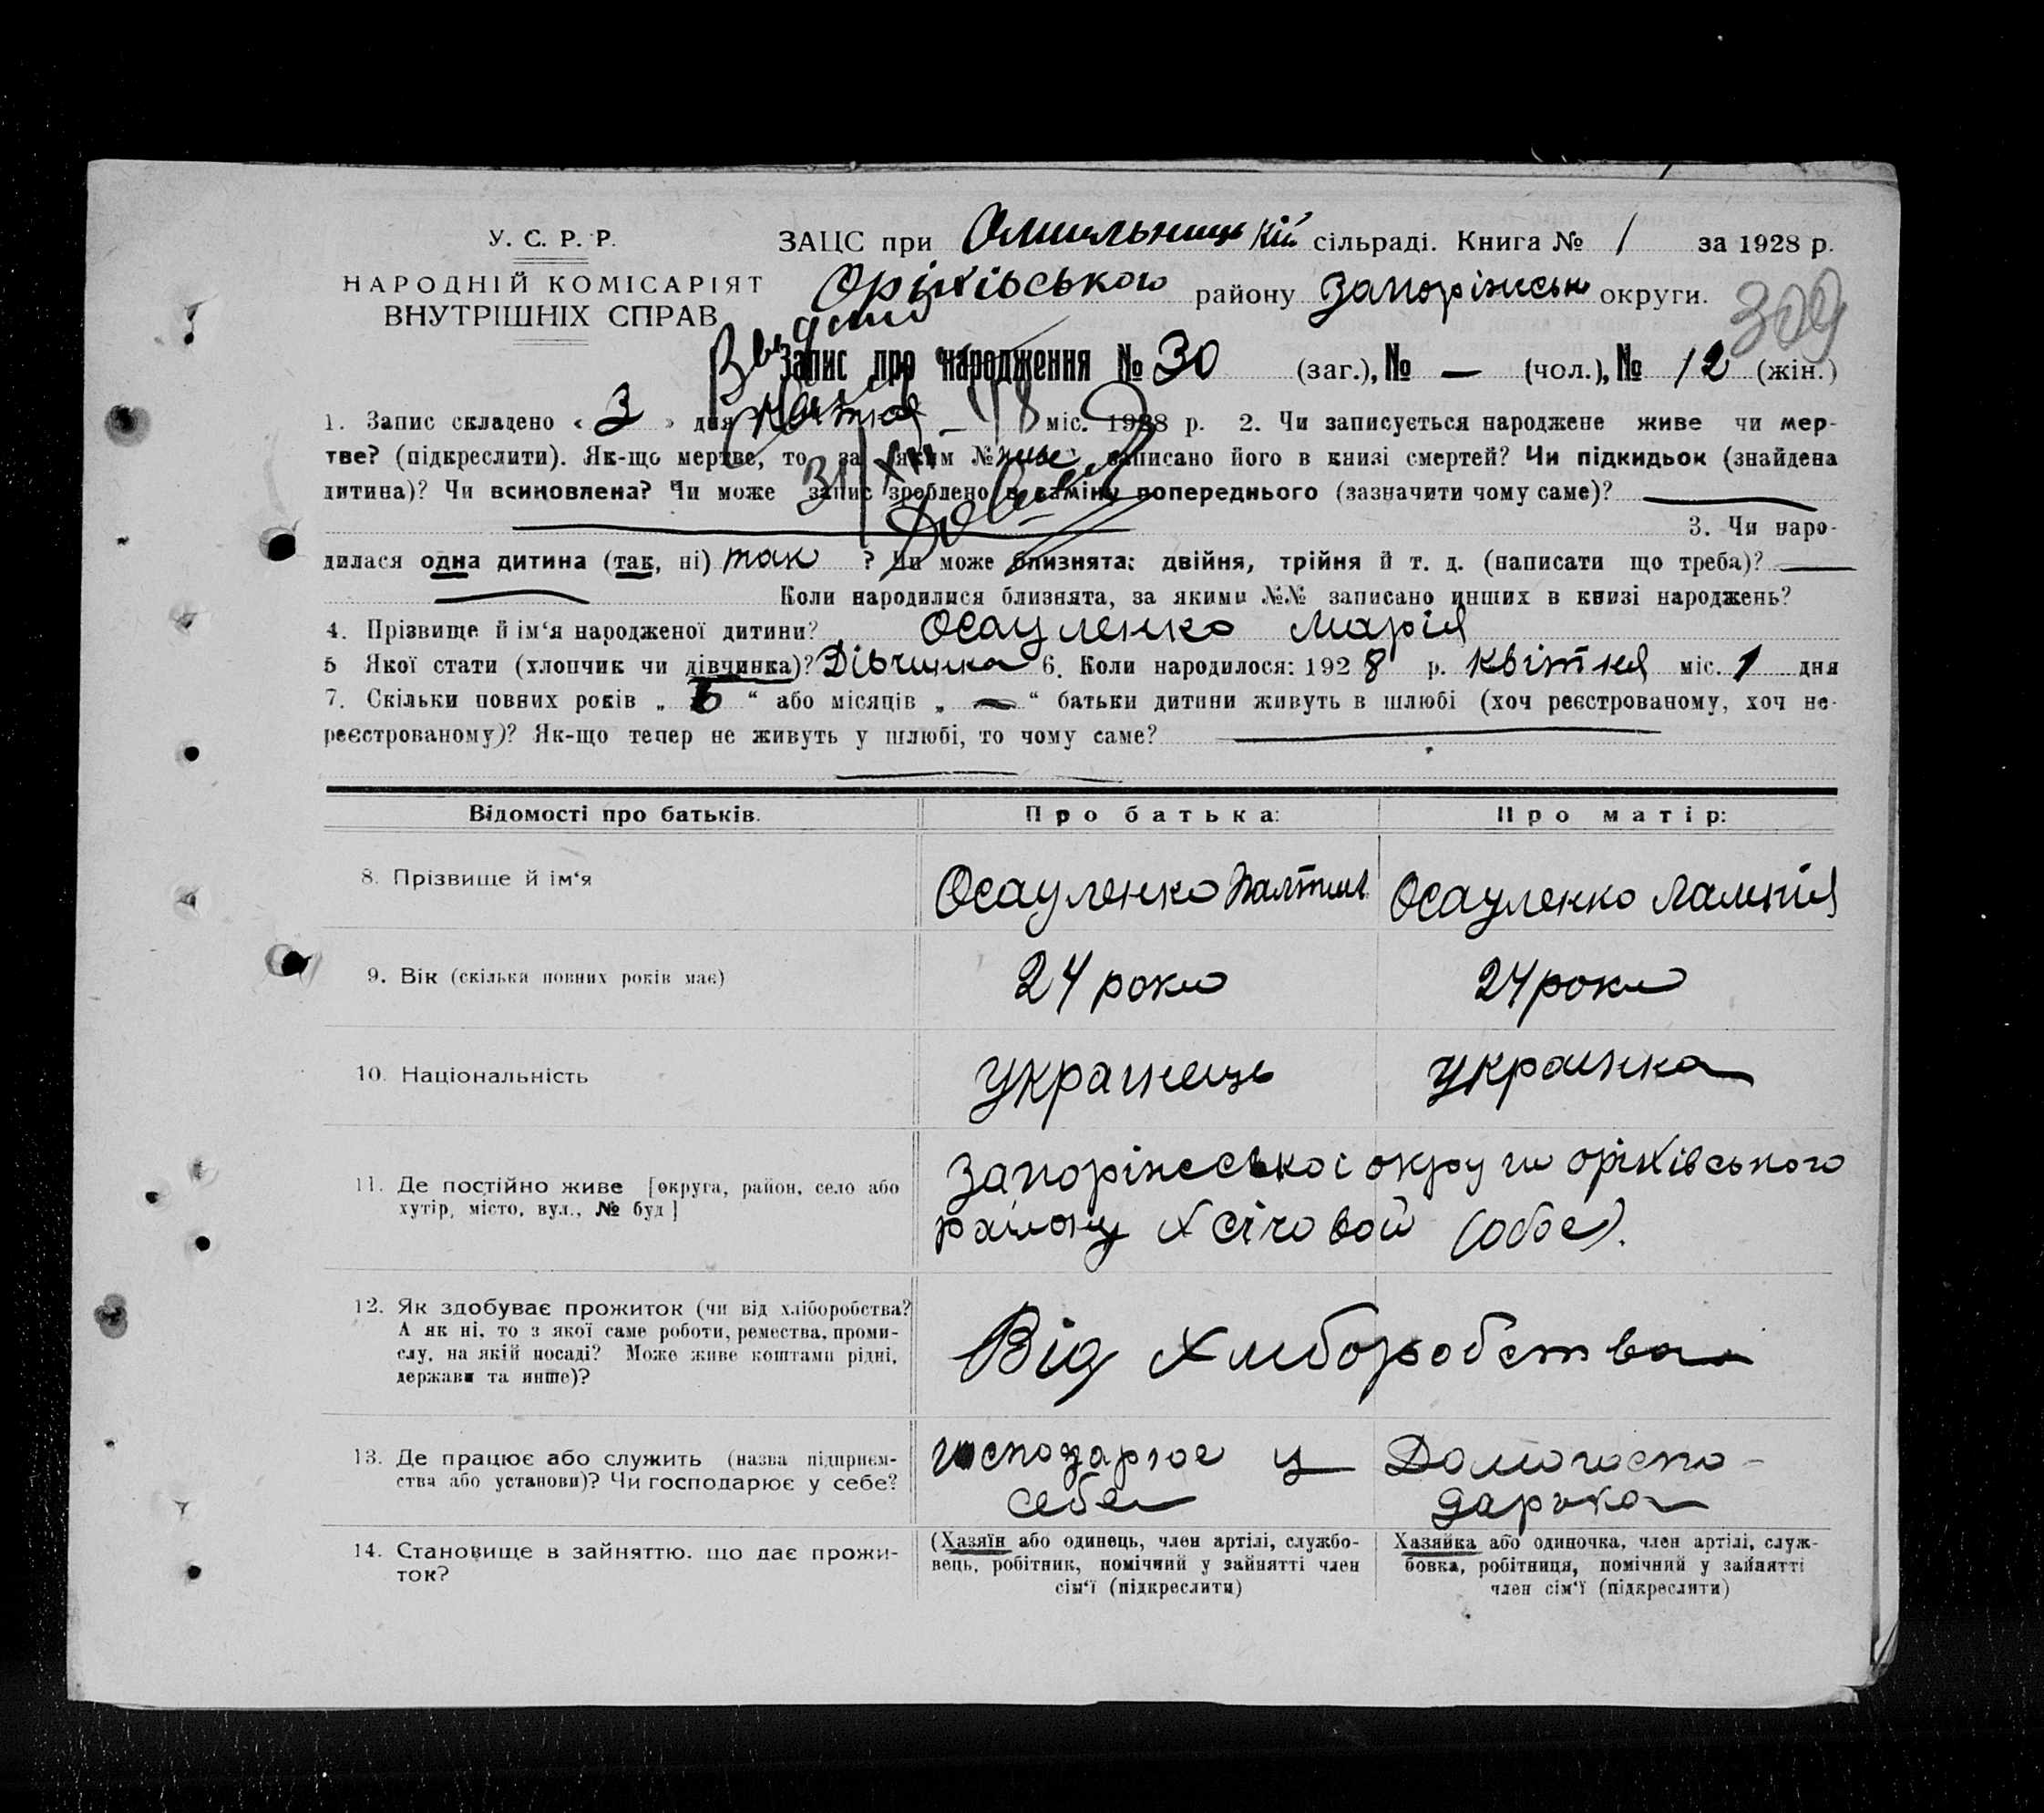 У. С. Р. Р.
НАРОДНІЙ КОМІСАРІЯТ
ВНУТРІШНІХ СПРАВ
ЗАЦС при Омельницькій сільраді. Книга № 1 за 1928 р.
Оріхівського району Запоріжськ округи.
309
Запис про народження № 30 (заг.), № — (чол.), № 12 (жін.)
1. Запис складено « 3 » дня квітня міс. 1928 р. 2. Чи записується народжене живе чи мер-
тве? (підкреслити). Як-що мертве, то за яким № записано його в книзі смертей? Чи підкидьок (знайдена
дитина)? Чи всиновлена? Чи може запис зроблено в заміну попереднього (зазначити чому саме)?
3. Чи наро-
дилася одна дитина (так, ні) так ? Чи може близнята: двійня, трійня й т. д. (написати що треба)? —
Коли народилися близнята, за якими №№ записано инших в книзі народжень?
4. Прізвище й ім‘я народженої дитини? Осауленко Марія
5 Якої стати (хлопчик чи дівчинка)? Дівчинка 6. Коли народилося: 1928 р. квітня міс. 1 дня
7. Скільки повних років „ 5 “ або місяців „ — “ батьки дитини живуть в шлюбі (хоч реєстрованому, хоч не-
реєстрованому)? Як-що тепер не живуть у шлюбі, то чому саме?
Відомості про батьків. Про батька: Про матір:
8. Прізвище й ім‘я Осауленко Осауленко Лампія
9. Вік (скільки повних років має) 24 роки 24 роки
10. Національність Украинець Украинка
11. Де постійно живе [округа, район, село або
хутір, місто, вул., № буд]
Запоріжської округи Оріхівського
району х Січовой (обоє).
12. Як здобуває прожиток (чи від хліборобства?
А як ні, то з якої саме роботи, ремества, проми-
слу, на якій посаді? Може живе коштами рідні,
держави та инше)?
Від Хлиборобства
13. Де працює або служить (назва підприєм-
ства або установи)? Чи господарює у себе?
господарює у
себе
Домогоспо-
дарька
14. Становище в зайняттю, що дає прожи-
ток?
(Хазяїн або одинець, член артілі, службо-
вець, робітник, помічний у зайнятті член
сім‘ї (підкреслити)
Хазяйка або одиночка, член артілі, служ-
бовка, робітниця, помічний у зайнятті
член сім‘ї (підкреслити)